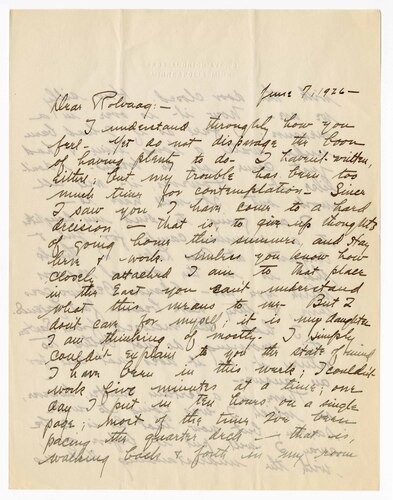 June 7, 1926—
Dear Rolvaag:—
I understand throughly how you
feel. Yet do not disparage the boon
of having plenty to do. I haven't written,
either; but my trouble has been too
much time for contemplation. Since
I saw you I have come to a hard
decision — that is to give up thoughts
of going home this summer, and stay
here & work. Unless you know how
closely attached I am to that place
in the East you can't understand
what this means to me. But I
dont care for myself; it is my daughter
I am thinking of mostly. I simply
couldn't explain to you the state of mind
I have been in this week; I couldn't
work five minutes at a time; one
day I put in ten hours on a single
page; most of the time I've been
pacing the quarter deck — that is,
walking back & forth in my room